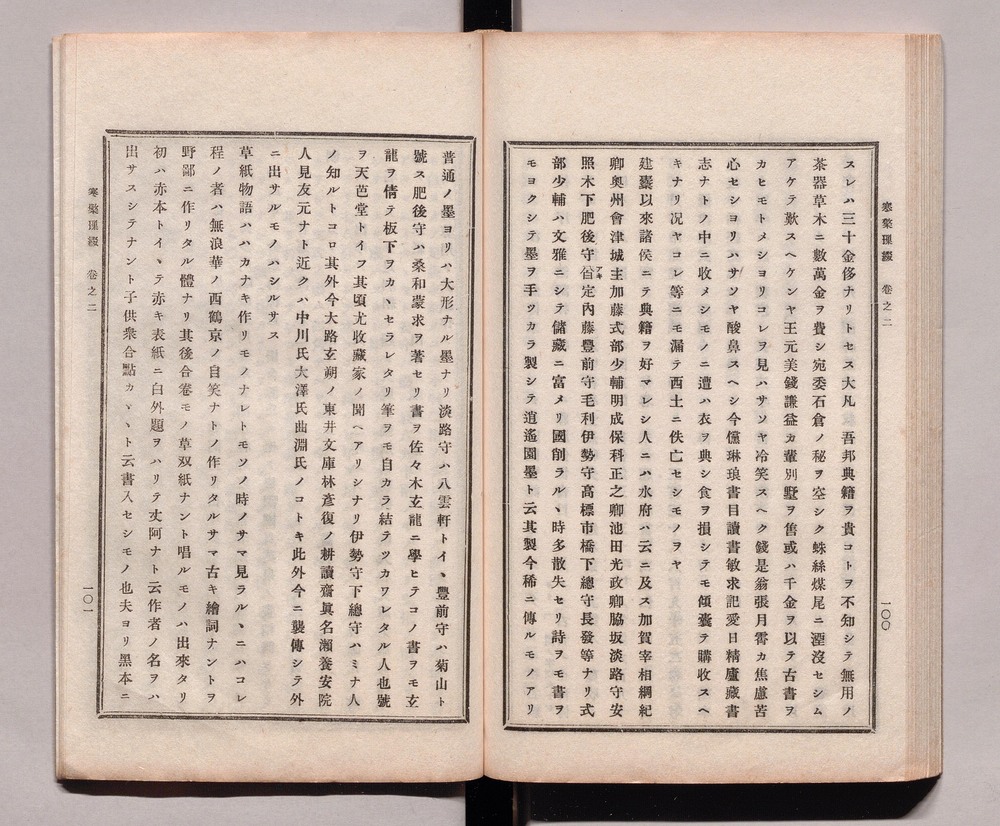 寒檠璅綴 卷之二
一〇〇
スレハ三十金侈ナリトセス大凡 吾邦典籍ヲ貴コトヲ不知シテ無用ノ
茶器草木ニ數萬金ヲ費シ宛委石倉ノ秘ヲ空シク蛛絲煤尾ニ湮沒セシム
アケテ歎スヘケンヤ王元美錢謙益カ輩別墅ヲ售或ハ千金ヲ以テ古書ヲ
カヒモトメシヨリコレヲ見ハサソヤ冷笑スヘク錢是翁張月霄カ焦慮苦
心セシヨリハサソヤ酸鼻スヘシ今儻琳琅書目讀書敏求記愛日精廬藏書
志ナトノ中ニ收メシモノニ遭ハ衣ヲ典シ食ヲ損シテモ傾囊テ購收スヘ
キナリ况ヤコレ等ニモ漏テ西土ニ佚亡セシモノヲヤ
建櫜以來諸侯ニテ典籍ヲ好マレシ人ニハ水府ハ云ニ及ス加賀宰相綱紀
卿奧州會津城主加藤式部少輔明成保科正之卿池田光政卿脇坂淡路守安
照木下肥後守㒶定內藤豐前守毛利伊勢守高標市橋下總守長發等ナリ式
部少輔ハ文雅ニシテ儲藏ニ富メリ國削ラルヽ時多散失セリ詩ヲモ書ヲ
モヨクシテ墨ヲ手ツカラ製シテ逍遙園墨ト云其製今稀ニ傳ルモノアリ
普通ノ墨ヨリハ大形ナル墨ナリ淡路守ハ八雲軒トイヽ豐前守ハ菊山ト
號ス肥後守ハ桑和蒙求ヲ著セリ書ヲ佐々木玄龍ニ學ヒテコノ書ヲモ玄
龍ヲ倩テ板下ヲカヽセラレタリ筆ヲモ自カラ結テツカワレタル人也號
ヲ天芭堂トイフ其頃尤收藏家ノ聞ヘアリシナリ伊勢守下總守ハミナ人
ノ知ルトコロ其外今大路玄朔ノ東井文庫林彥復ノ耕讀齋眞名瀨養安院
人見友元ナト近クハ中川氏大澤氏曲淵氏ノコトキ此外今ニ襲傳シテ外
ニ出サルモノハシルサス
草紙物語ハハカナキ作リモノナレトモソノ時ノサマ見ラルヽニハコレ
程ノ者ハ無浪華ノ西鶴京ノ自笑ナトノ作リタルサマ古キ繪詞ナントヲ
野鄙ニ作リタル體ナリ其後合卷モノ草双紙ナント唱ルモノハ出來タリ
初ハ赤本トイヽテ赤キ表紙ニ白外題ヲハリテ丈阿ナト云作者ノ名ヲハ
出サスシテナント子供衆合點カヽヽト云書入セシモノ也夫ヨリ黑本ニ
寒檠璅綴 卷之二
一〇一